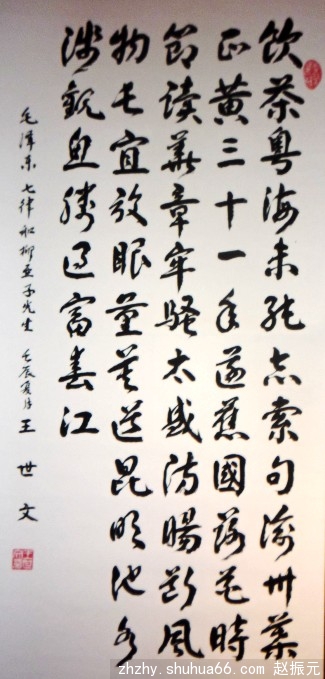 饮茶粤海未能忘索句渝州葉
正黄三十一年還舊國落花時
節读華章牢骚太盛防腸断風
物长宜放眼量莫道昆明池水
浅觀鱼勝过富春江
毛澤东七律和柳亚子先生 壬辰夏月 王世文
zhzhy.shuhua66.com 赵振元